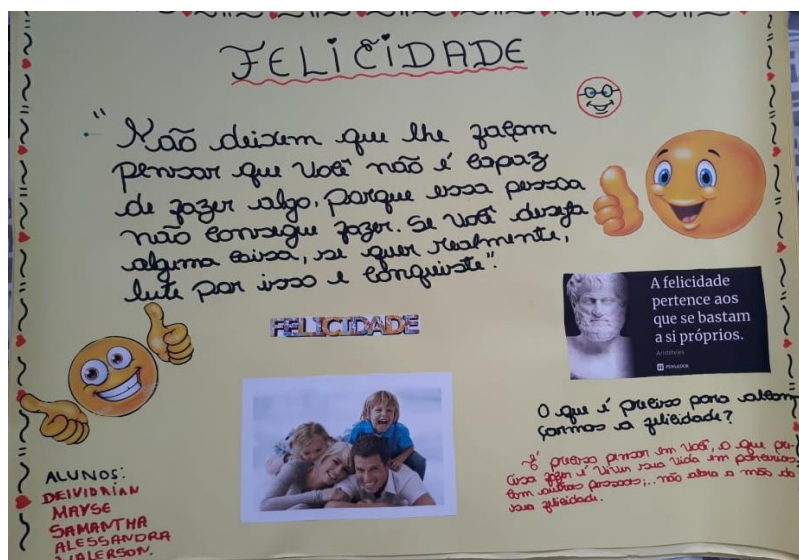 FELICIDADE
"Não deixem que lhe façam
pensar que você não é capaz
de fazer algo, porque essa pessoa
não consegue fazer. Se você deseja
alguma coisa, se quer realmente,
lute por isso e conquiste".
FELICIDADE
A felicidade
pertence aos
que se bastam
a si próprios.
Aristóteles
PENSADOR
O que é preciso para alcan
çarmos a felicidade?
É preciso pensar em você, o que pre-
cisa fazer é viver sua vida em parcerias
com outras pessoas;... não abra a mão da
sua felicidade.
ALUNOS:
DEIVIDRIAN
MAYSE
SAMANTHA
ALESSANDRA
WALERSON.